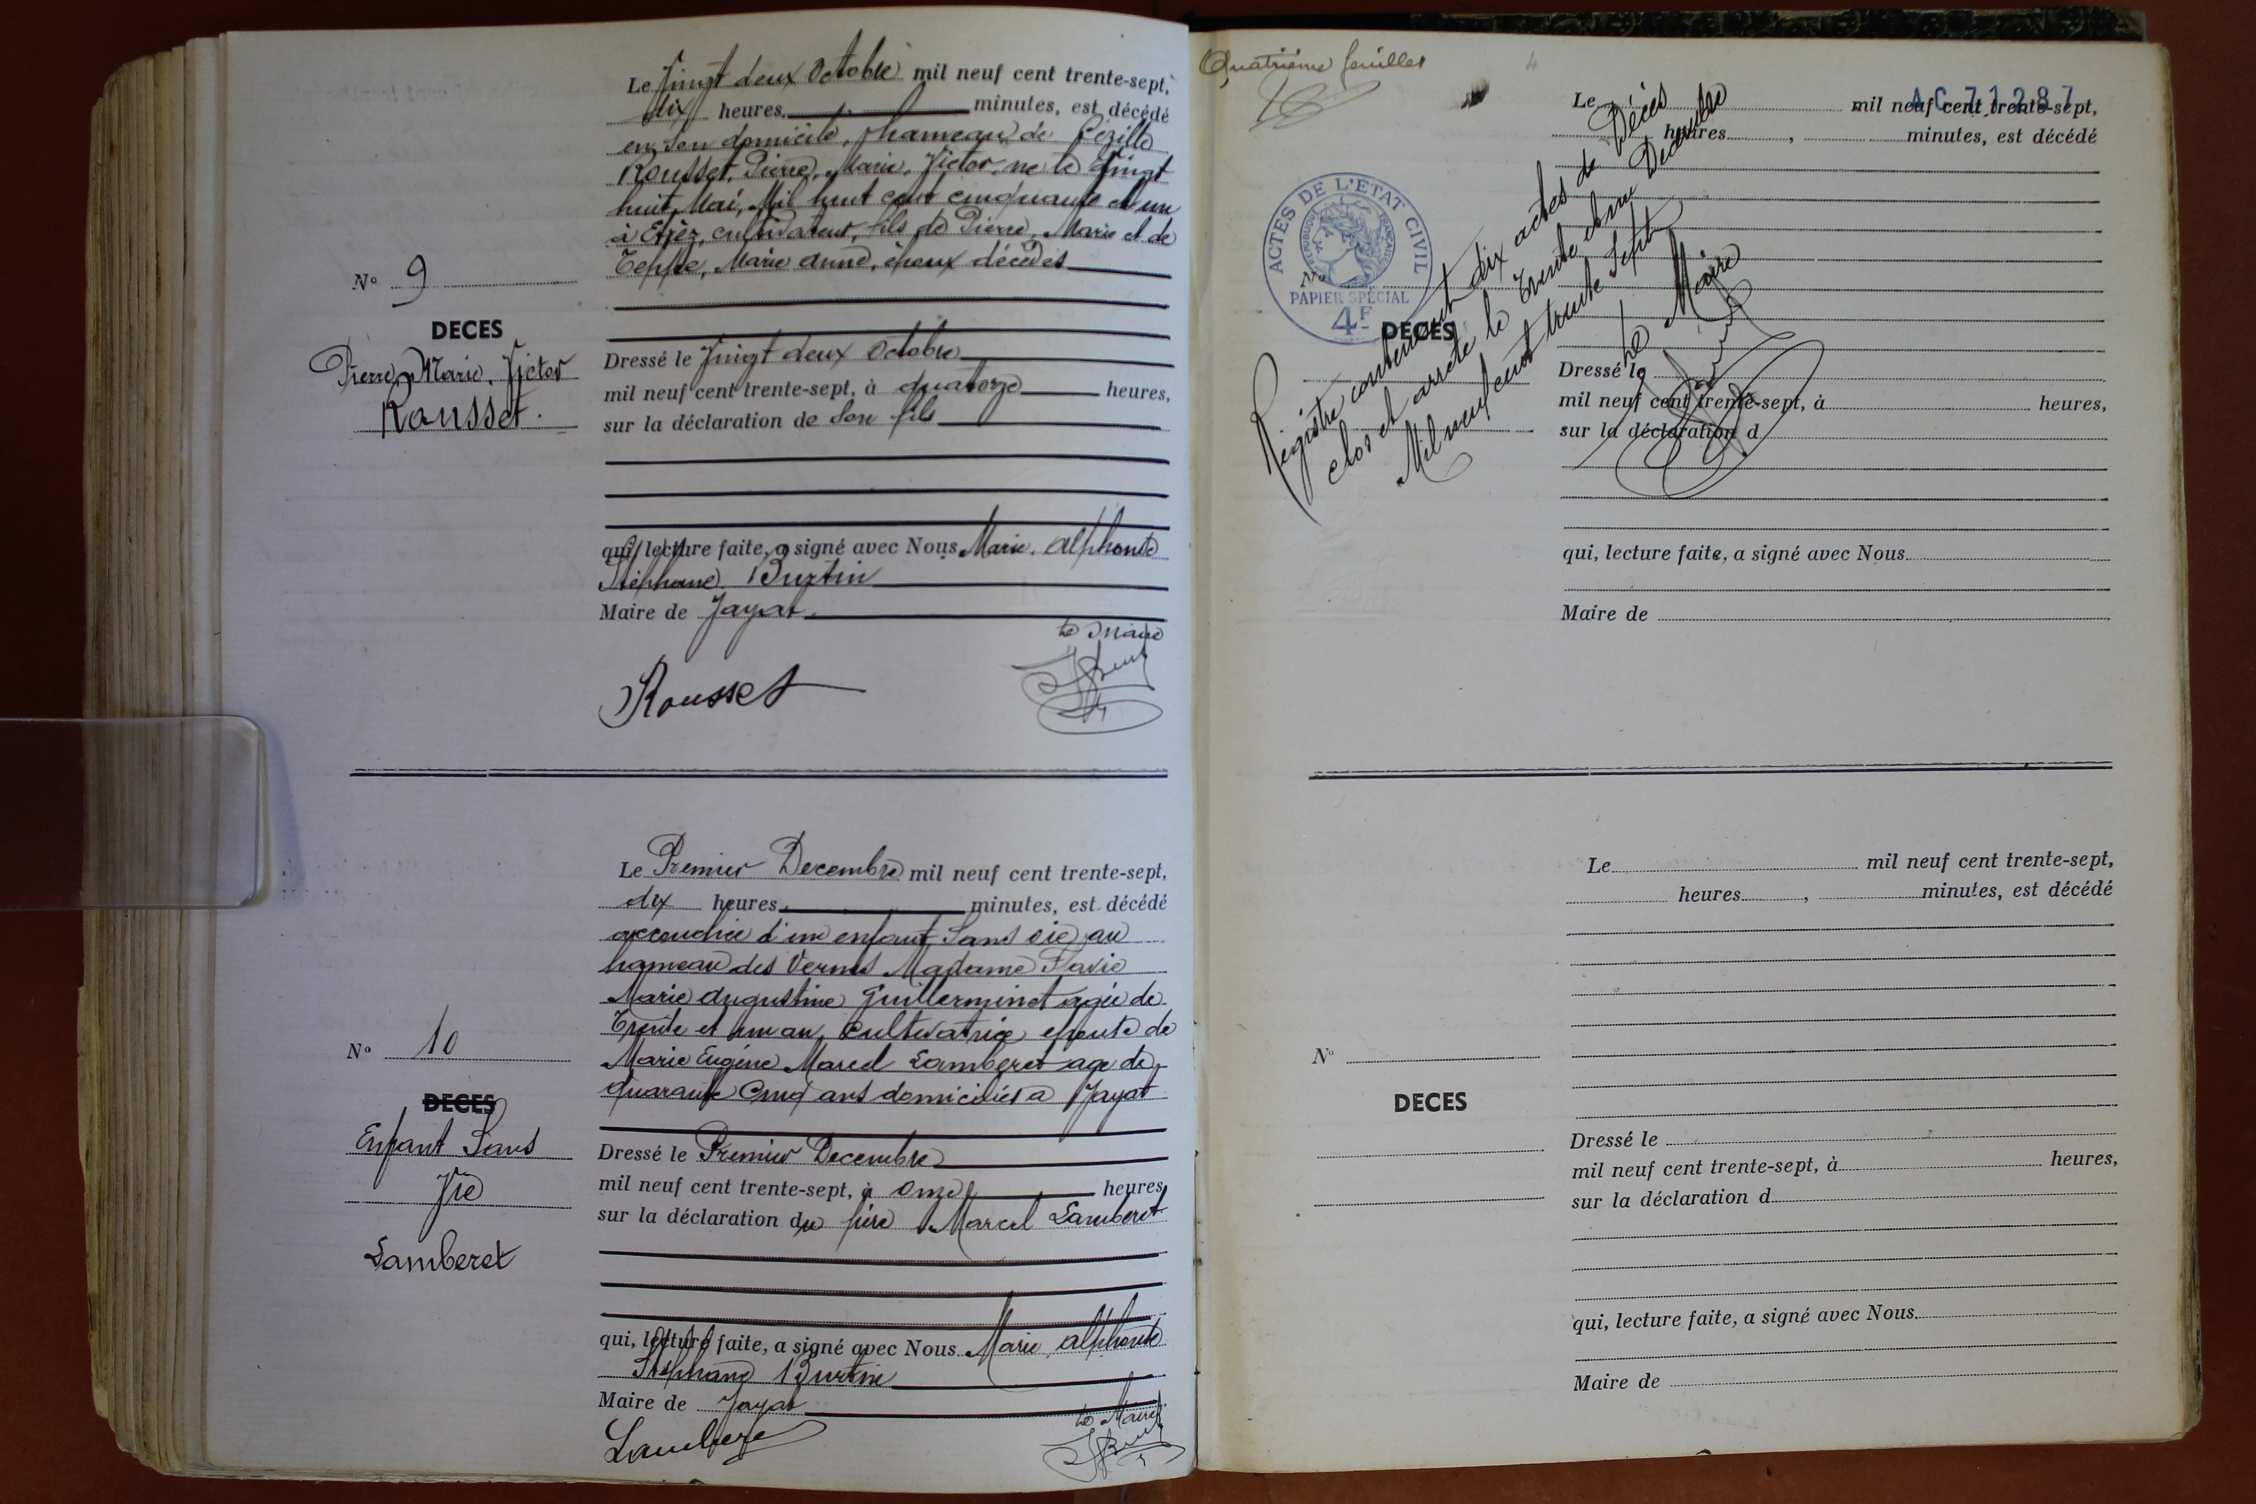 Le Vingt deux Octobre mil neuf cent trente-sept,
dix heures minutes, est décédé
en son domicile, hameau de Cézille
Rousset, Pierre, Marie, Victor, ne le Vingt
huit Mai, Mil huit cent cinquante et un
à Etrez, cultivateur, fils de Pierre, Marie et de
Teppe, Marie Anne, époux décédés
N° 9
DECES
Pierre, Marie, Victor
Rousset.
Dressé le Vingt deux Octobre
mil neuf cent trente-sept, à quatorze heures,
sur la déclaration de Son fils
qui, lecture faite, a signé avec Nous Marie, Alphonse
Stéphane Burtin
Maire de Jayat
Le Maire
Rousset
Le Premier Decembre mil neuf cent trente-sept,
dix heures minutes, est décédé
accouchée d'un enfant Sans vie au
hameau des Vernes Madame Flavie
Marie Augustine Guillerminet agée de
Trente et un an, Cultivatrice, epouse de
Marie Eugéne Marcel Lamberet age de
quarante Cinq ans domiciliés a Jayat
N° 10
DECES
Enfant Sans
Vie
Lamberet
Dressé le Premier Decembre
mil neuf cent trente-sept, à Onze heures
sur la déclaration du père Marcel Lamberet
qui, lecture faite, a signé avec Nous Marie Alphonse
Stéphane Burtin
Maire de Jayat
Le Maire
Lamberet
Quatrième feuillet
4
AC 71287
ACTES DE L'ETAT CIVIL
REPUBLIQUE FRANÇAISE
PAPIER SPÉCIAL
4F
Registre contenant dix actes de Décès
clos et arrété le Trente et un Decembre
Mil neuf cent trente Sept
Le Maire
Le mil neuf cent trente-sept,
heures , minutes, est décédé
N°
DECES
Dressé le
mil neuf cent trente-sept, à heures,
sur la déclaration d
qui, lecture faite, a signé avec Nous
Maire de
Le mil neuf cent trente-sept,
heures , minutes, est décédé
N°
DECES
Dressé le
mil neuf cent trente-sept, à heures,
sur la déclaration d
qui, lecture faite, a signé avec Nous
Maire de